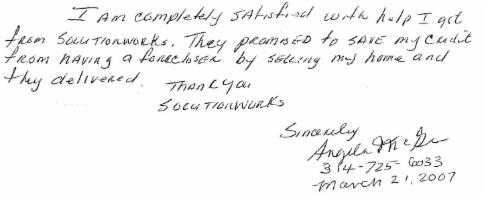 I AM completely satisfied with help I got
from SOLUTIONWORKS. They promised to SAVE my credit
from having a foreclosér by selling my home and
they delivered. THANK you
SOLUTIONWORKS
Sincerely
Angela
314-725-0033
March 21, 2007